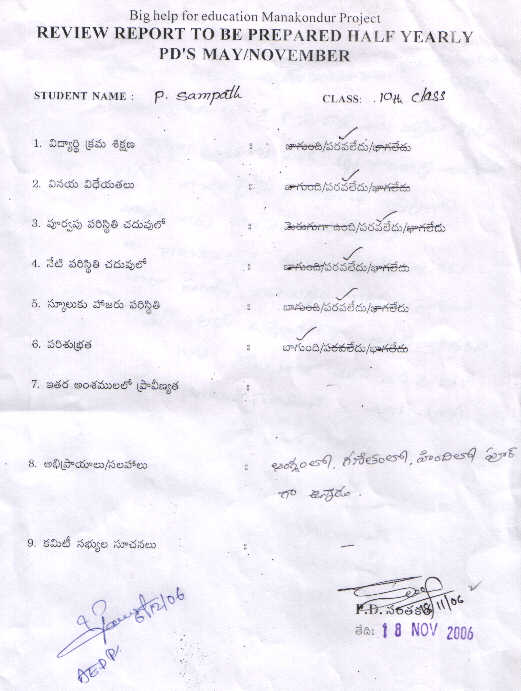 Big help for education Manakondur Project
REVIEW REPORT TO BE PREPARED HALF YEARLY
PD'S MAY/NOVEMBER
STUDENT NAME : P. Sampath CLASS: 10th class
1. విద్యార్థి క్రమ శిక్షణ : బాగుంది/పరవలేదు/బాగలేదు
2. వినయ విధేయతలు : బాగుంది/పరవలేదు/బాగలేదు
3. పూర్వపు పరిస్థితి చదువులో : మెరుగుగా ఉంది/పరవలేదు/బాగలేదు
4. నేటి పరిస్థితి చదువులో : బాగుంది/పరవలేదు/బాగలేదు
5. స్కూలుకు హాజరు పరిస్థితి : బాగుంది/పరవలేదు/బాగలేదు
6. పరిశుభ్రత : బాగుంది/పరవలేదు/బాగలేదు
7. ఇతర అంశములలో ప్రావీణ్యత : -
8. అభిప్రాయాలు/సలహాలు : ఆంగ్లంలో, గణితంలో, హిందిలో పూర్
గా ఉన్నాడు.
9. కమిటీ సభ్యుల సూచనలు : -
6/12/06
P.D. సంతకం 18/11/06
తేది: 18 NOV 2006